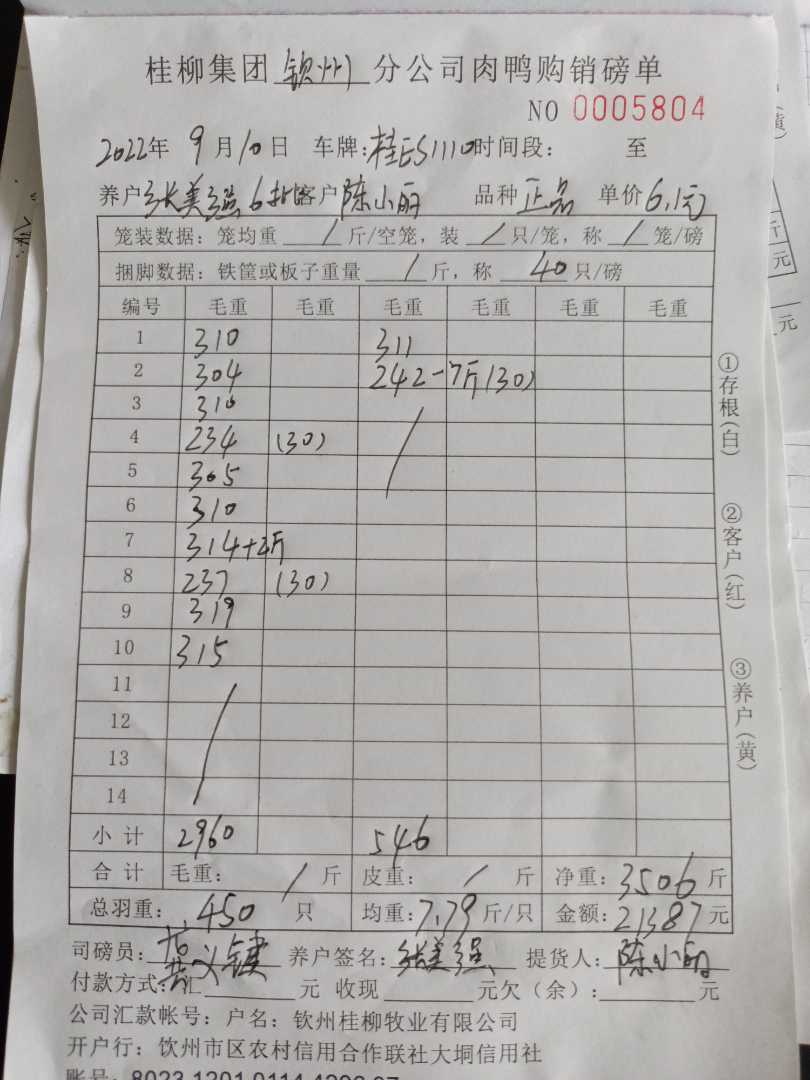 桂柳集团 钦州 分公司肉鸭购销磅单
NO 0005804
2022年 9月10日 车牌:桂ES1110时间段: 至
养户张美强6批客户陈小丽 品种正品 单价6.1元
笼装数据: 笼均重 / 斤/空笼, 装 / 只/笼, 称 / 笼/磅
捆脚数据: 铁筐或板子重量 / 斤, 称 40 只/磅
编号 毛重 毛重 毛重 毛重 毛重 毛重
1 310 311
2 304 242-7斤(30)
3 310
4 234 (30) /
5 305
6 310
7 314+2斤
8 237 (30)
9 319
10 315
11
12 /
13
14
小计 2960 546
合计 毛重: / 斤 皮重: / 斤 净重: 3506 斤
总羽重: 450 只 均重: 7.79 斤/只 金额: 21387 元
司磅员: 养户签名: 张美强 提货人: 陈小丽
付款方式: 汇 元 收现 元欠(余): 元
公司汇款帐号: 户名: 钦州桂柳牧业有限公司
开户行: 钦州市区农村信用合作联社大垌信用社
账号: 8023 1201 0114 4298 97
①存根(白)
②客户(红)
③养户(黄)
(黄)
斤
元
元